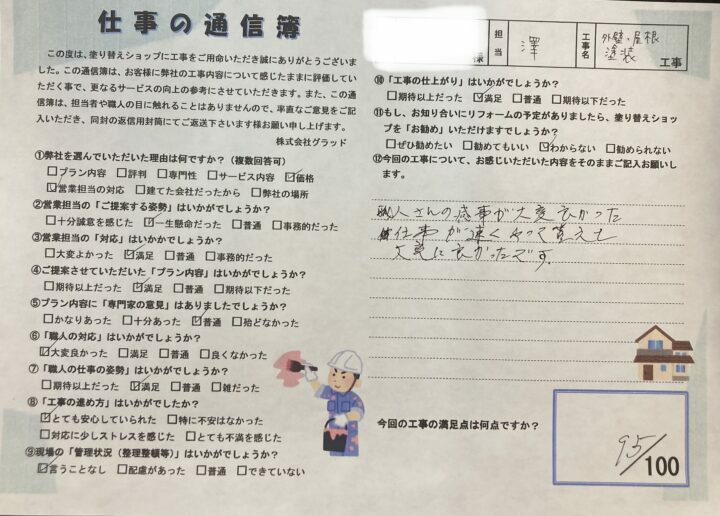 仕事の通信簿
様
担当
澤
工事名
外壁・屋根
塗装
工事
この度は、塗り替えショップに工事をご用命いただき誠にありがとうございま
した。この通信簿は、お客様に弊社の工事内容について感じたままに評価してい
ただく事で、更なるサービスの向上の参考にさせていただきます。また、この通
信簿は、担当者や職人の目に触れることはありませんので、率直なご意見をご記
入いただき、同封の返信用封筒にてご返送下さいます様お願い申します。
株式会社グラッド
①弊社を選んでいただいた理由は何ですか?(複数回答可)
□プラン内容 □評判 □専門性 □サービス内容 ☑価格
☑営業担当の対応 □建てた会社だったから □弊社の場所
②営業担当の「ご提案する姿勢」はいかがでしょうか?
□十分誠意を感じた ☑一生懸命だった □普通 □事務的だった
③営業担当の「対応」はいかかでしょうか?
□大変よかった ☑満足 □普通 □事務的だった
④ご提案させていただいた「プラン内容」はいかがでしょうか?
□期待以上だった ☑満足 □普通 □期待以下だった
⑤プラン内容に「専門家の意見」はありましたでしょうか?
□かなりあった □十分あった ☑普通 □殆どなかった
⑥「職人の対応」はいかがでしょうか?
☑大変良かった □満足 □普通 □良くなかった
⑦「職人の仕事の姿勢」はいかがでしょうか?
□期待以上だった ☑満足 □普通 □雑だった
⑧「工事の進め方」はいかがでしたか?
☑とても安心していられた □特に不安はなかった
□対応に少しストレスを感じた □とても不満を感じた
⑨現場の「管理状況(整理整頓等)」はいかがでしょうか?
☑言うことなし □配慮があった □普通 □できていない
⑩「工事の仕上がり」はいかがでしょうか?
□期待以上だった ☑満足 □普通 □期待以下だった
⑪もし、お知り合いにリフォームの予定がありましたら、塗り替えショッ
プを「お勧め」いただけますでしょうか?
□ぜひ勧めたい □勧めてもいい ☑わからない □勧められない
⑫今回の工事について、お感じいただいた内容をそのままご記入お願いし
ます。
職人さんの感事が大変良かった
仕事が速くやって貰えて
大変に良かったです。
今回の工事の満足点は何点ですか?
95/100